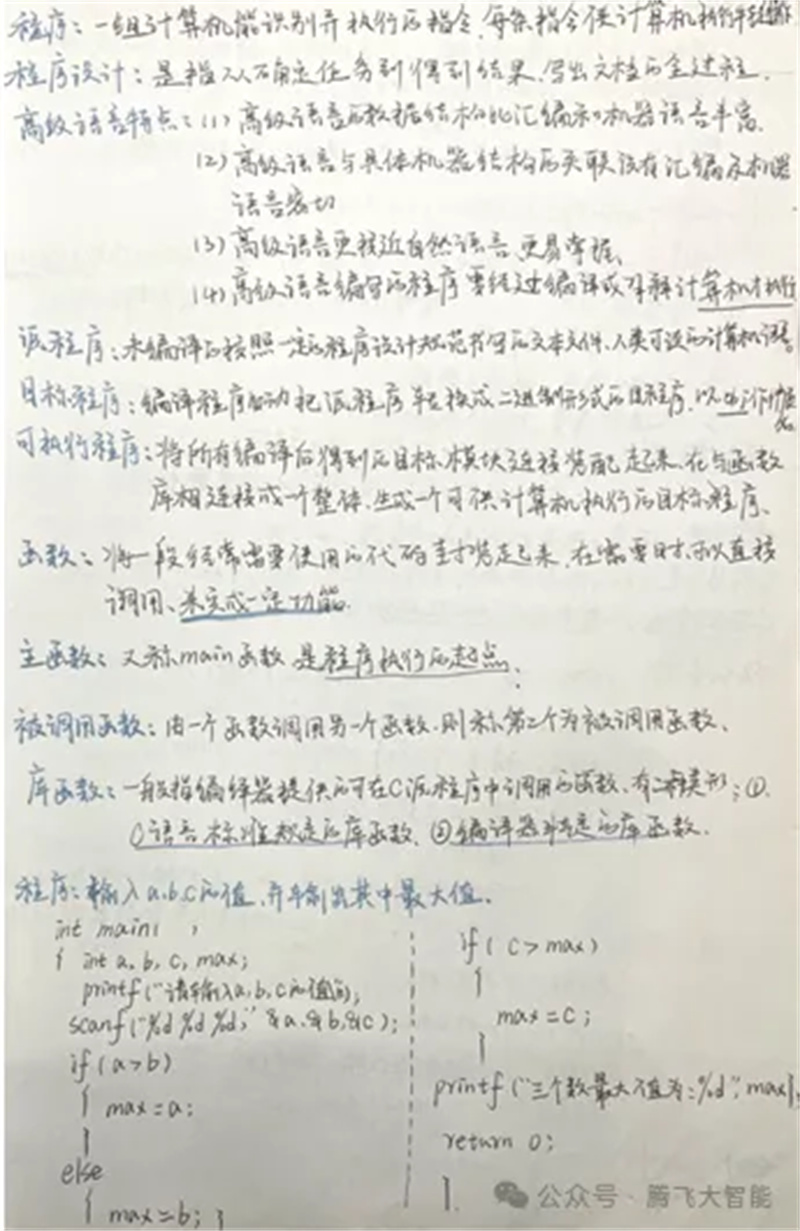 程序：一组计算机能识别并执行的指令，每条指令使计算机执行特定操作
程序设计：是指从确定任务到得到结果，写出文档的全过程．
高级语言特点：(1) 高级语言的数据结构比汇编和机器语言丰富．
(2) 高级语言与具体机器结构的关联没有汇编及机器
语言密切
(3) 高级语言更接近自然语言、更易掌握、
(4) 高级语言编写的程序要经过编译或解释计算机才执行
源程序：未编译的按照一定的程序设计规范书写的文本文件、人类可读的计算机语言
目标程序：编译程序自动把源程序转换成二进制形式的目标程序．以
可执行程序：将所有编译后得到的目标模块连接装配起来、在与函数
库相连接成一个整体、生成一个可供计算机执行的目标程序、
函数：将一段经常需要使用的代码封装起来、在需要时可以直接
调用、来完成一定功能．
主函数：又称main函数 是程序执行的起点、
被调用函数：由一个函数调用另一个函数．则称第二个为被调用函数、
库函数：一般指编译器提供的可在C源程序中调用的函数、有两类形；①
C语言标准规定的库函数．②编译器特定的库函数．
程序：输入a.b.c的值、并输出其中最大值、
int main( )
{ int a, b, c, max;
printf("请输入a,b,c的值
scanf("%d %d %d," &a.&b.&c);
if(a>b)
{ max=a;
}
else
{ max=b; }
if( c>max)
{
max=c;
}
printf("三个数最大值为:%d", max);
return 0;
}
公众号·腾飞大智能